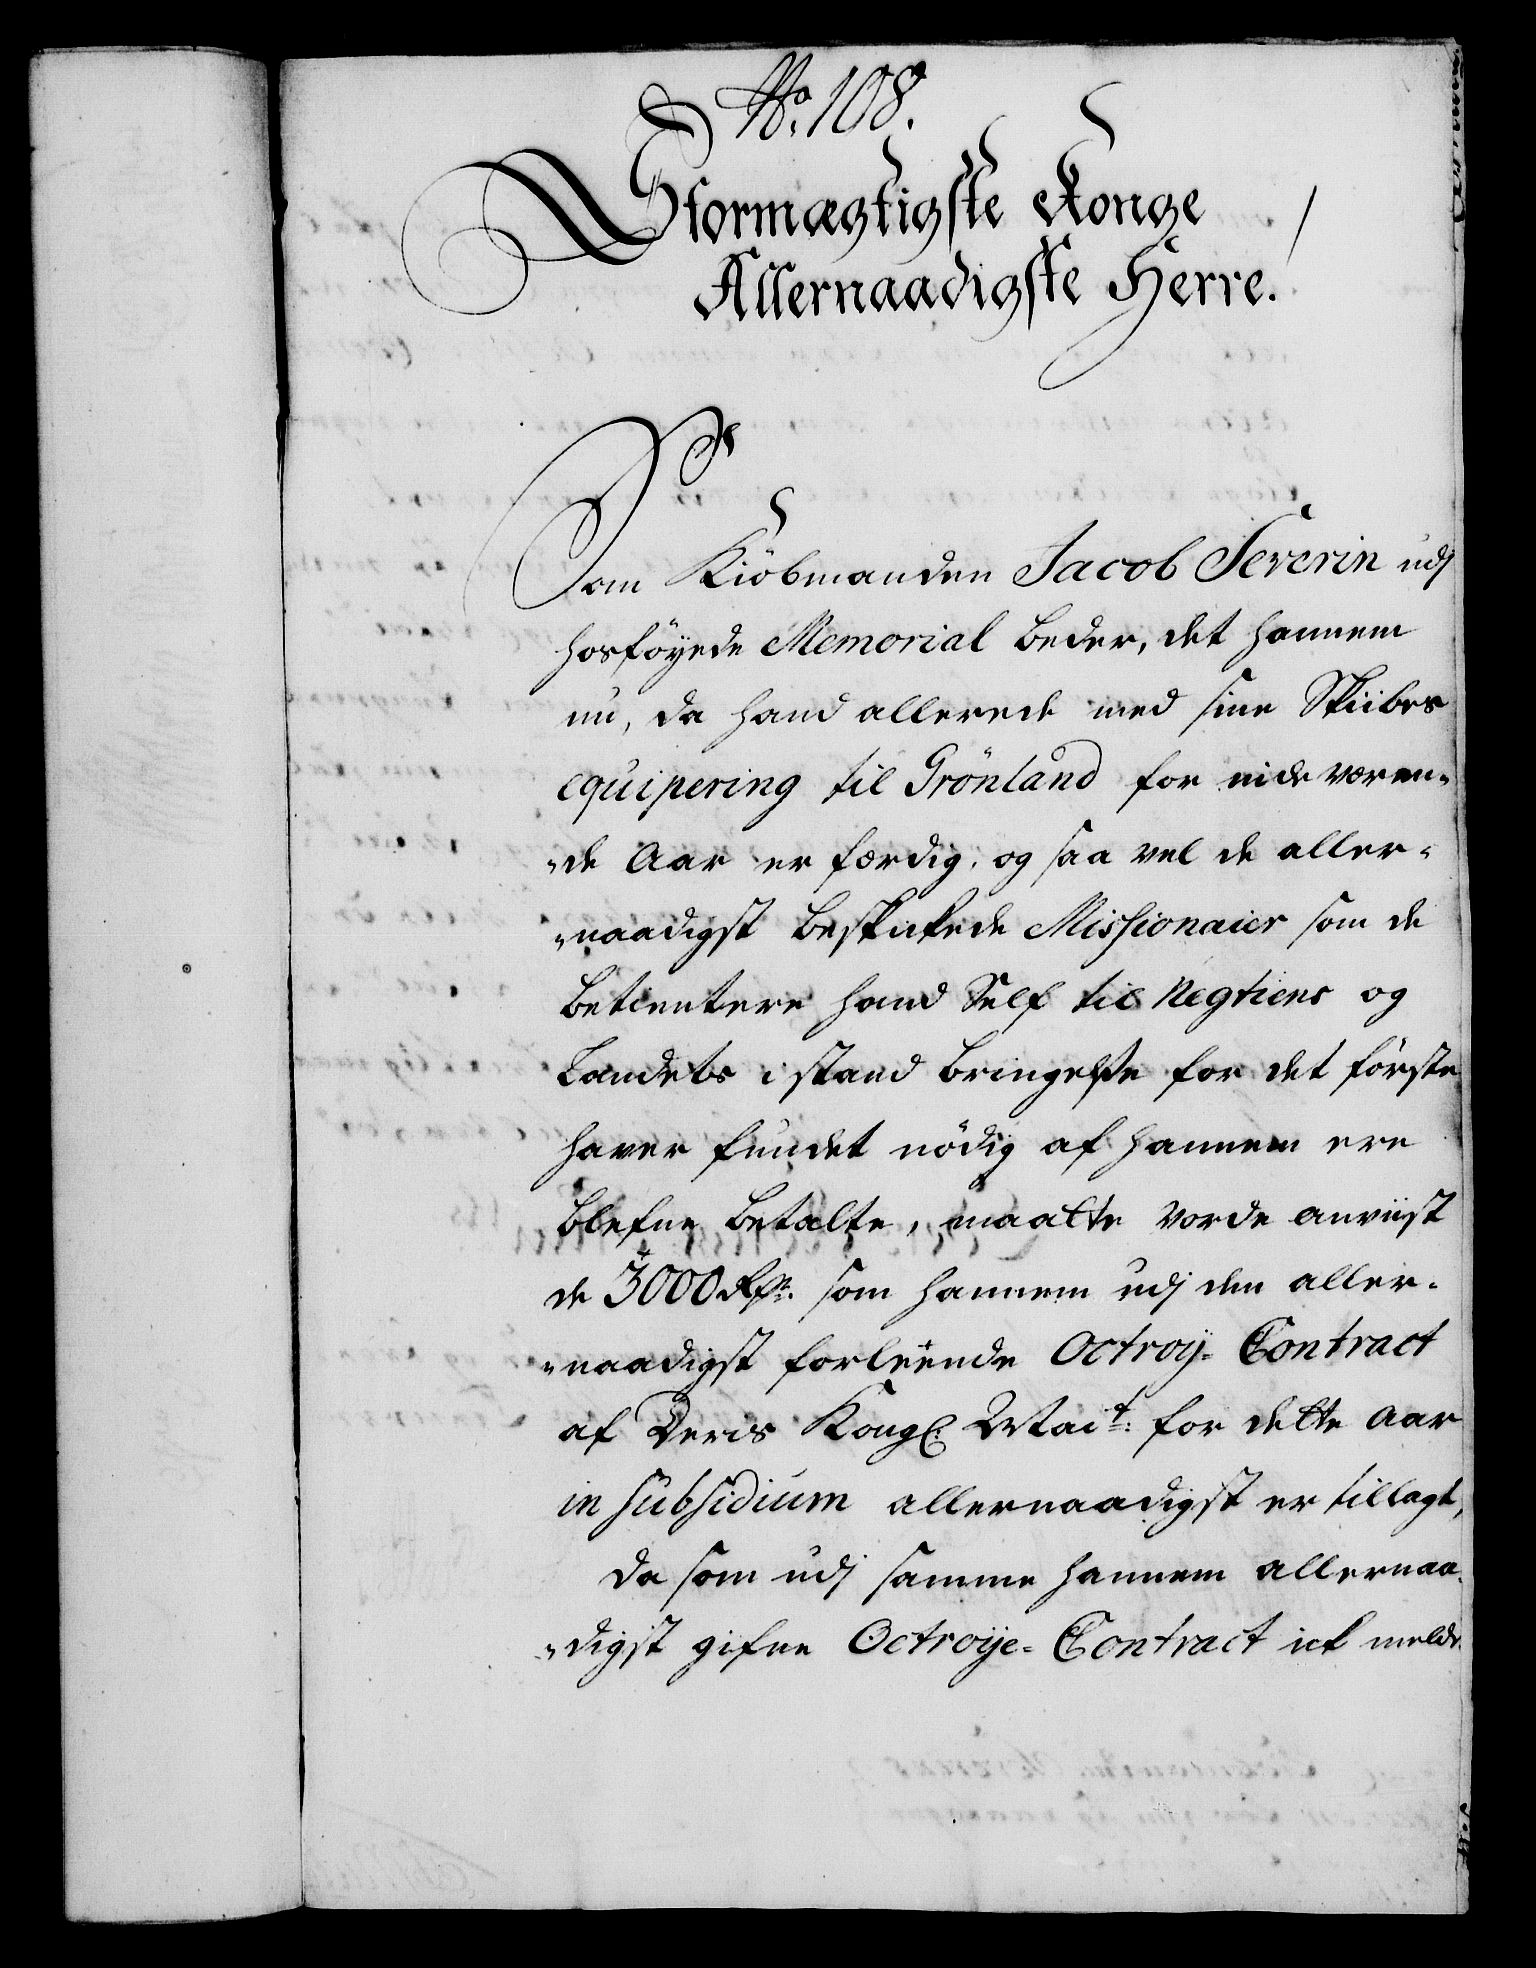 No. 108.
Stormægtigste Konge
Allernaadigste Herre!
Som Kiöbmanden Jacob Severin udj
hosföyede Memorial beder, det hannem
nu, da hand allerede med sine Skiibes
equipering til Grönland for nideværen-
-de Aar er færdig, og saa vel de aller-
-naadigst beskikkede Missionaier som de
betientere hand Self til Negtiens og
Landets i stand bringelse for det förste
haver fundet nödig af hannem ere
blefne betalte, maatte vorde anviist
de 3000 Rdr. som hannem udj den aller-
-naadigst forleende Octroij- Contract
af Deris Kongl. Mait: for dette Aar
in subsidium allernaadigst er tillagt,
da som udj samme hannem allernaa-
-digst gifne Octroije- Contract ick melde